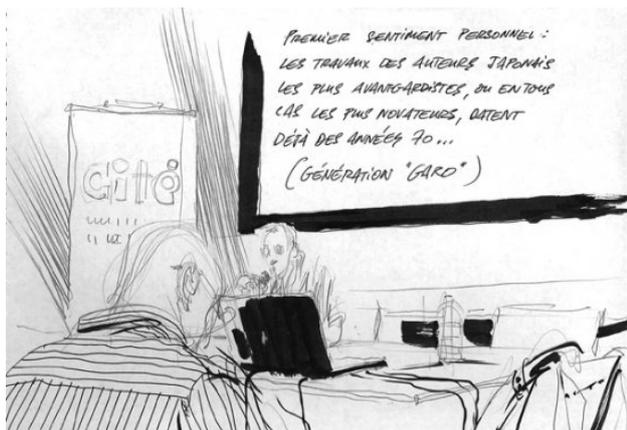 PREMIER SENTIMENT PERSONNEL :
LES TRAVAUX DES AUTEURS JAPONAIS
LES PLUS AVANT-GARDISTES, OU EN TOUS
CAS LES PLUS NOVATEURS, DATENT
DÉJÀ DES ANNÉES 70...
(GÉNÉRATION "GARO")
Cité